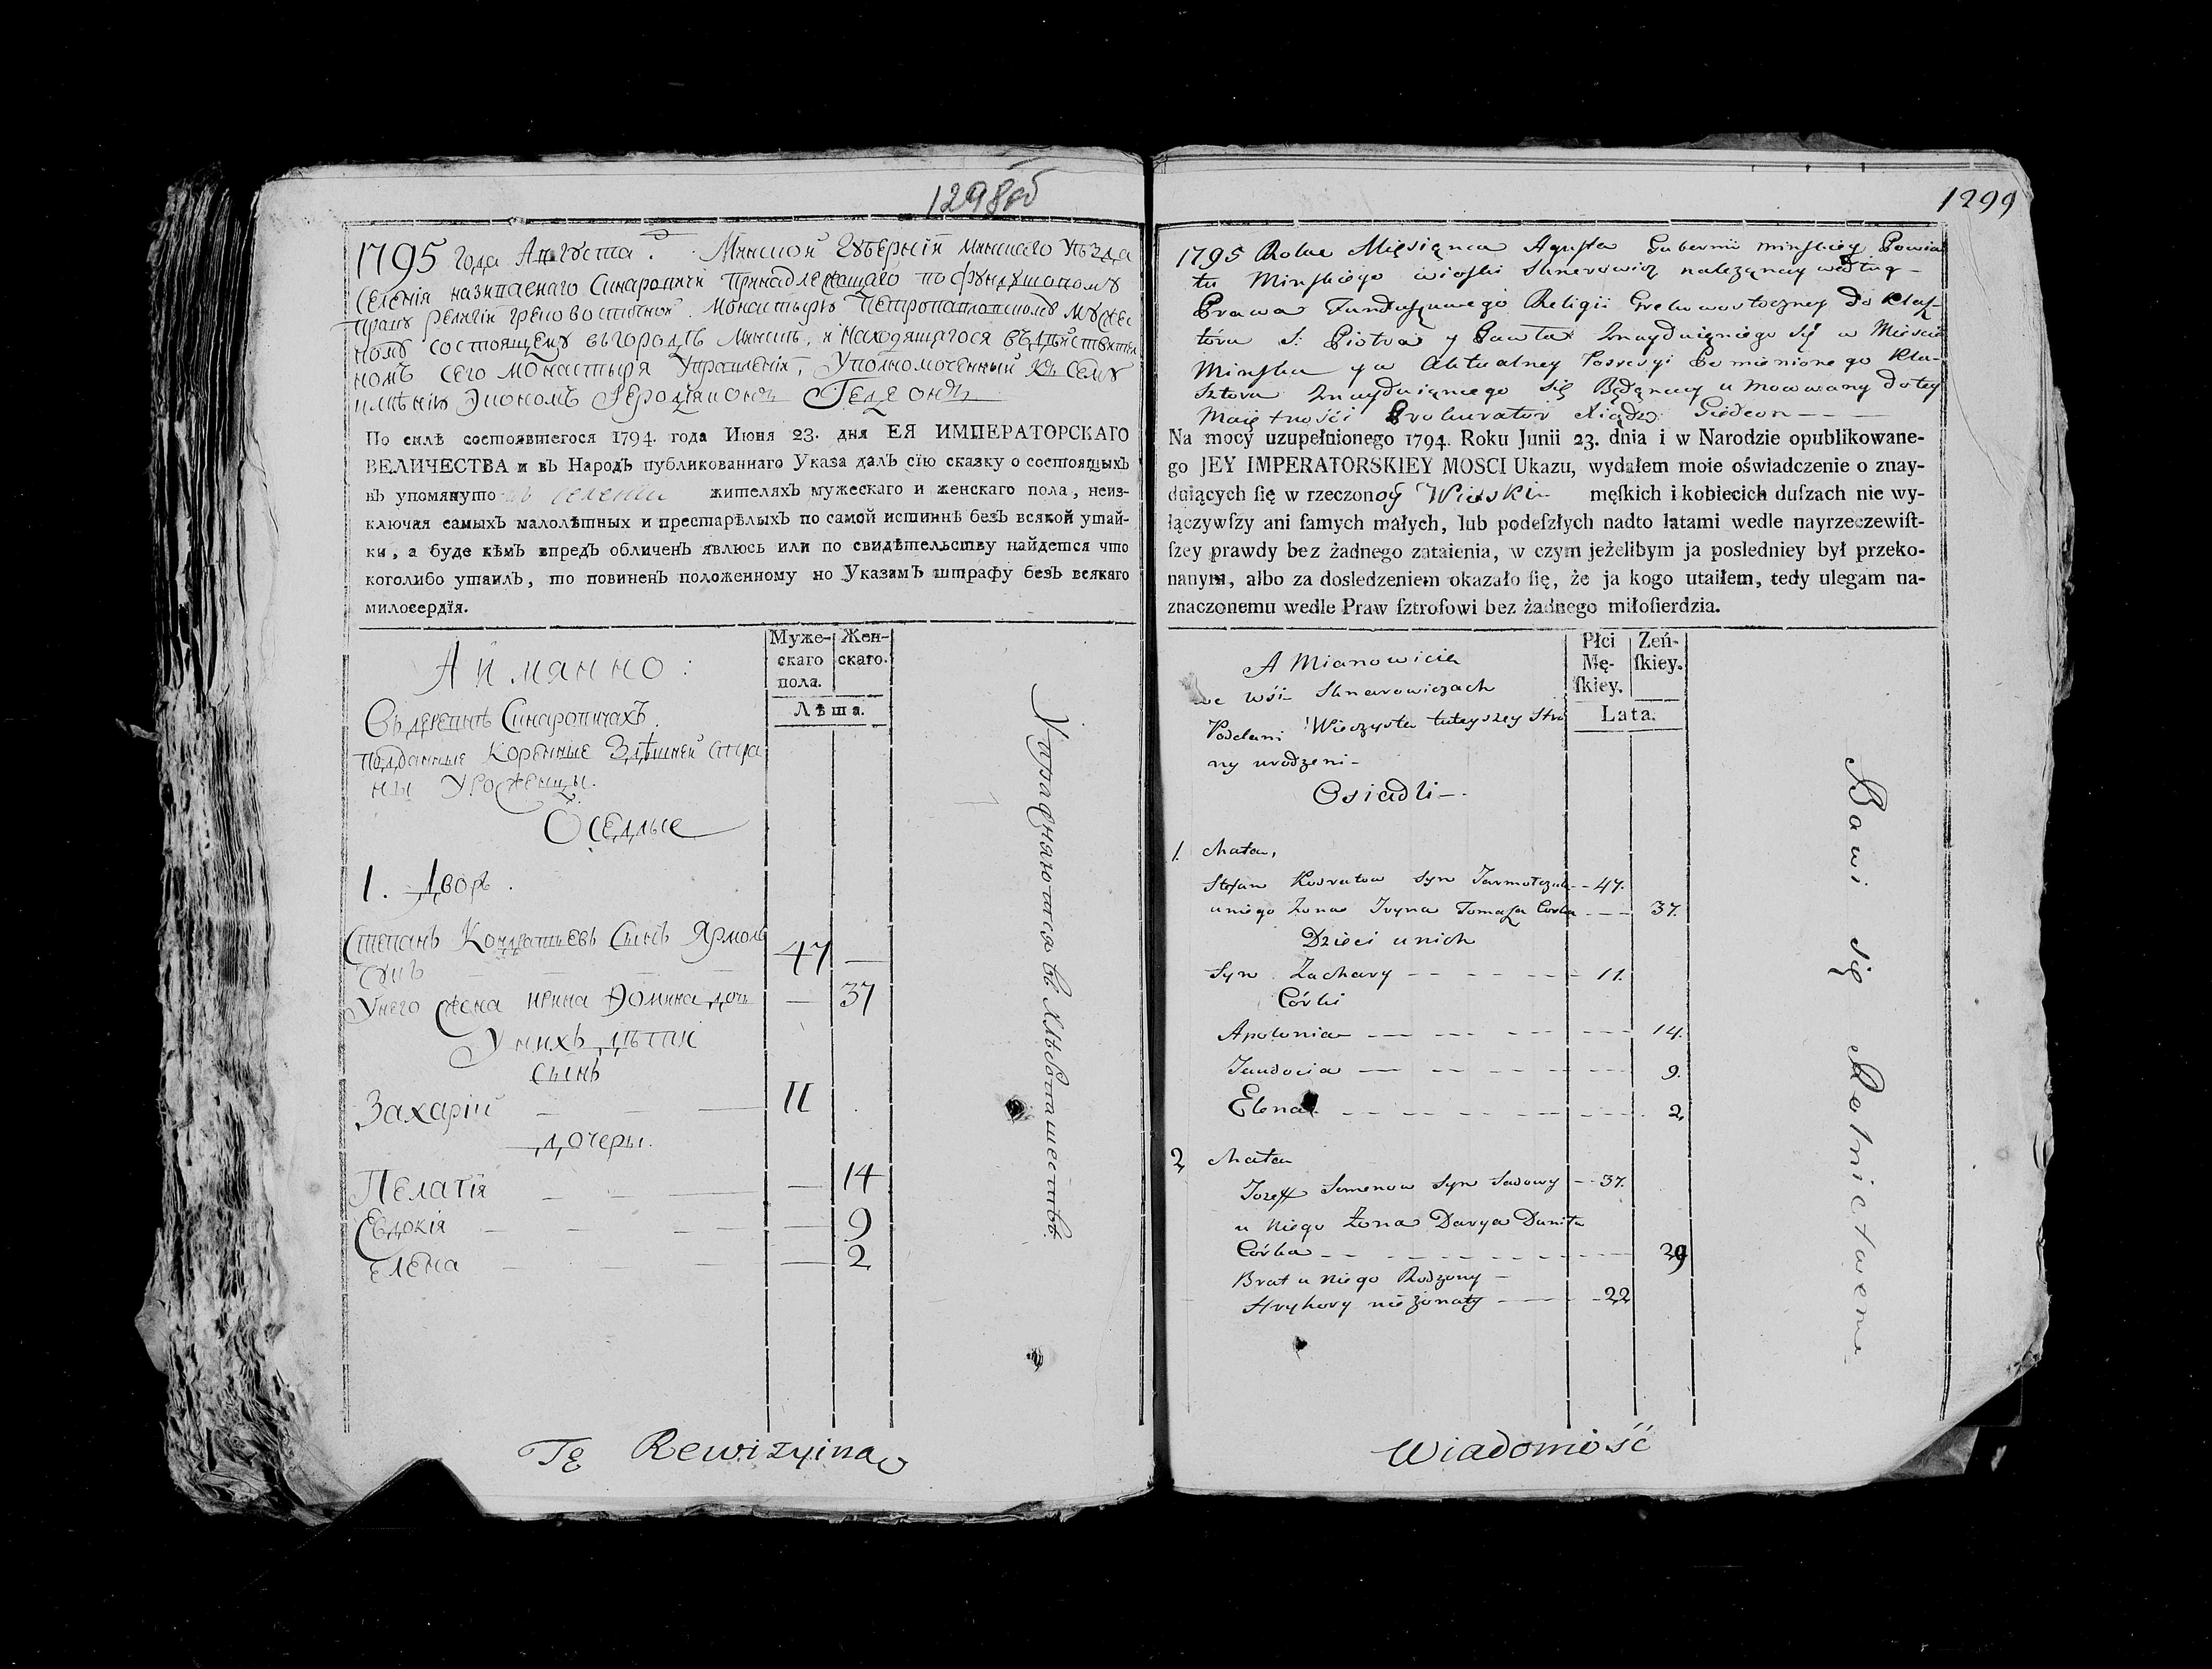 1298об
1795 года Августа. Минской Губерніи Минскаго уѣзда
селенія называемаго Синаровичи принадлежащаго по фундушовому
праву религіи грековосточной монастырю Петропавловскому мужес
кому состоящему въ городѣ Минскѣ, и находящагося въ дѣйствител
номъ сего монастыря управленіи, уполномоченный къ сему
имѣнію Экономъ Іеродіяконъ Гедеонъ
По силѣ состоявшегося 1794. года Июня 23. дня ЕЯ ИМПЕРАТОРСКАГО
ВЕЛИЧЕСТВА и въ Народъ публикованнаго Указа далъ сїю сказку о состоящыхъ
въ упомянуто селеніи жителяхъ мужескаго и женскаго пола, неиз-
ключая самыхъ малолѣтных и престарѣлыхъ по самой истиннѣ безъ всякой утай-
ки, а буде кѣмъ впредъ обличенъ явлюсь или по свидѣтельству найдется что
коголибо утаилъ, то повиненъ положенному по Указамъ штрафу безъ всякаго
милосердїя.
Муже-
скаго
пола.
Жен-
скаго.
Лѣта.
А имянно:
Въ деревнѣ Синаровичахъ.
Подданные коренные здѣшней стра
ны уроженцы.
Оседлые
1. Дворъ.
Степанъ Кондратьевъ сынъ Ярмоль
чукъ 47
У него жена Ирина Фомина дочь 37
У нихъ дѣтей
сынъ
Захарій 11
дочеры.
Пелагія 14
Евдокія 9
Елена 2
Упражняются в хлѣбопашествѣ.
Tę Rewizyina
1299
1795 Roku Miesiąca Agusta Gubernii Minskiey Powia
tu Minskiego wioski Sknarowicz należącay według
Prawa Funduszowego Religii Grekowostoczney do klasz
toru S: Piotra y Pawła Znayduiącego się w Mieście
Minsku y w Aktualney Possesyi Pomienionego Kla-
sztoru Znayduiącego się Będący umocowany do tey
Maiętności Prokurator Xiądz Giedeon
Na mocy uzupełnionego 1794. Roku Junii 23. dnia i w Narodzie opublikowane-
go JEY IMPERATORSKIEY MOSCI Ukazu, wydałem moie oświadczenie o znay-
duiących ſię w rzeczonoy Wioski męſkich i kobiecich duſzach nie wy-
łączywſzy ani ſamych małych, lub podeſzłych nadto latami wedle nayrzeczewiſt-
ſzey prawdy bez żadnego zataienia, w czym jeżelibym ja posledniey był przeko-
nanym, albo za dosledzeniem okazało ſię, że ja kogo utaiłem, tedy ulegam na-
znaczonemu wedle Praw ſztrofowi bez żadnego miłoſierdzia.
Płci
Mę-
ſkiey.
Zeń-
ſkiey.
Lata.
A Mianowicie
we wśi Sknarowiczach
Poddani Wieczyste tuteyszey Stro
ny urodzeni
Osiadli
1. Chata,
Stefan Kondratow Syn Jarmołczuk 47.
u niego Żona Iryna Tomasza Corka 37.
Dzieci u nich
Syn Zachary 11.
Córki
Apolonia 14.
Jewdocia 9.
Elena 2
2 Chata
Jozeff Semenow Syn Sadowy 37.
u Niego Żona Darya Daniła
Córka 29
Brat u Niego Rodzony
Hryhory nie żonaty 22
Bawi się Rolnictwem
Wiadomość